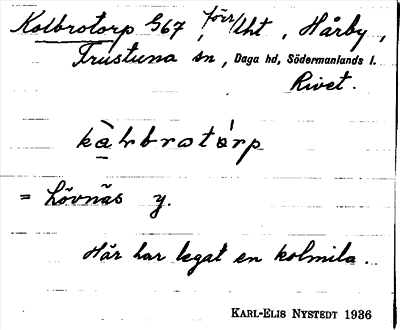 Kolbrotorp G67, förr lht, Hårby,
Frustuna sn, Daga hd, Södermanlands l.
Rivet.
kàlbrotórp
= Lövnäs y.
Här har legat en kolmila.
KARL-ELIS NYSTEDT 1936